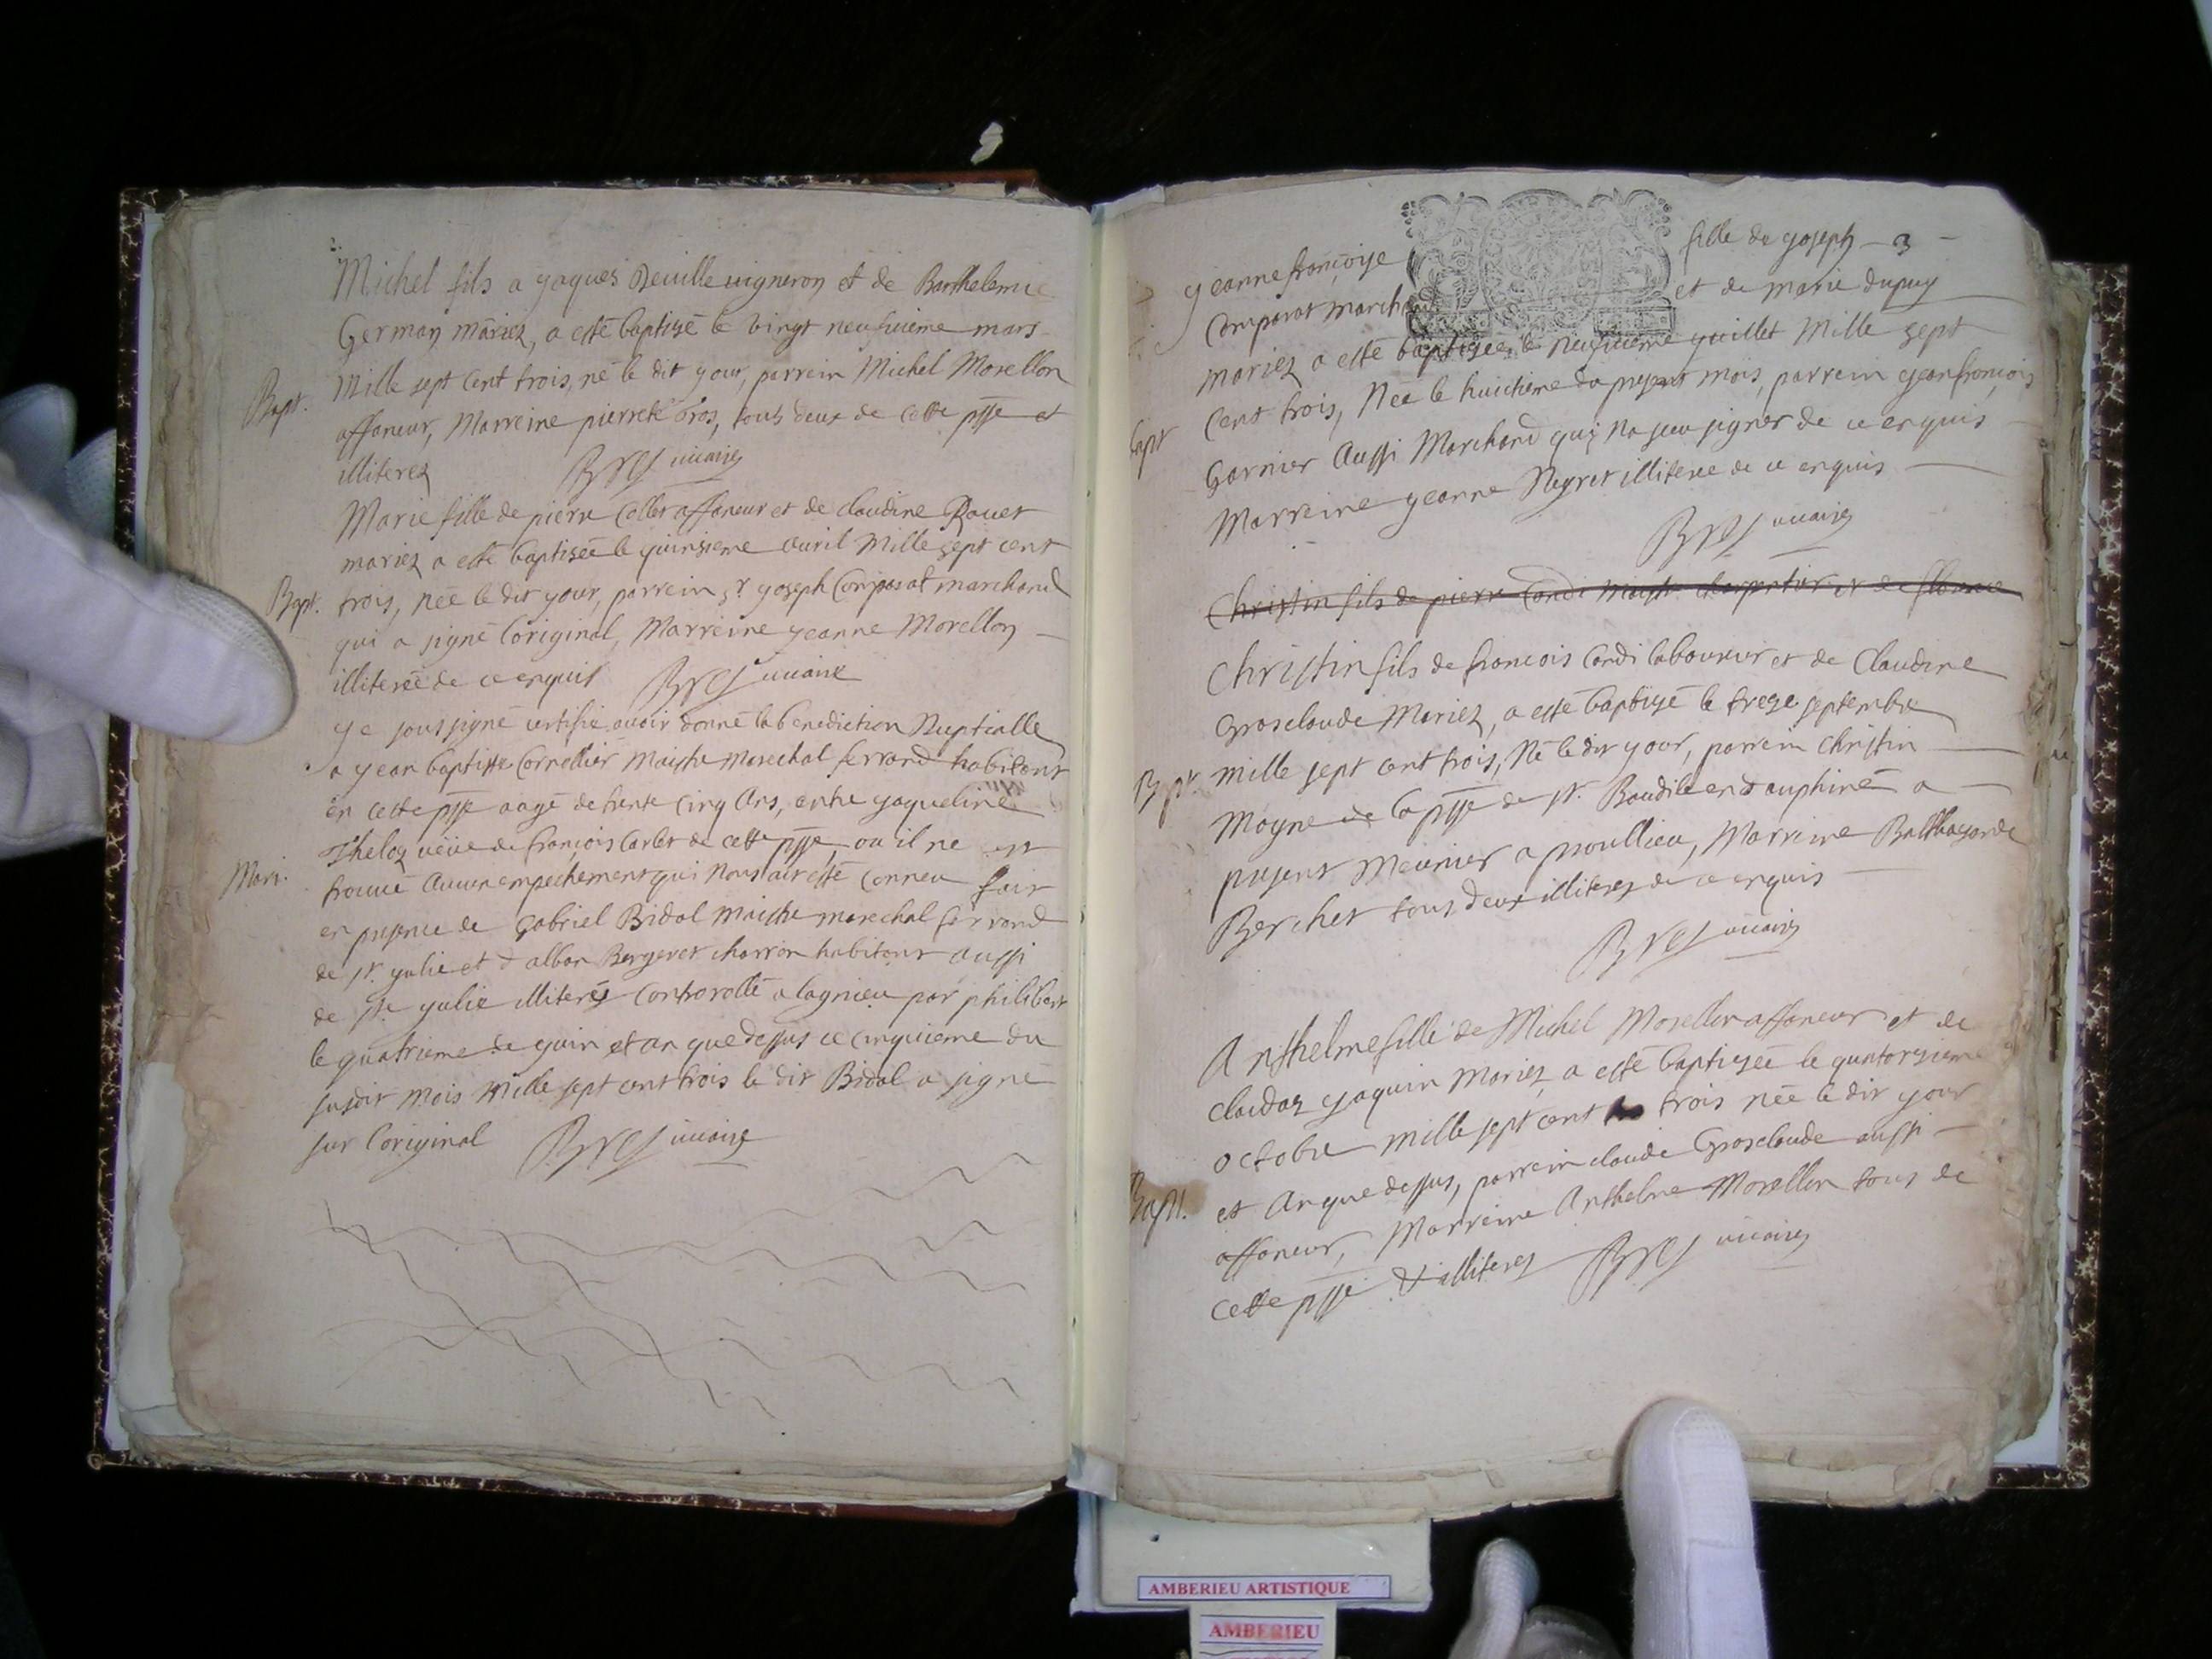 Michel fils a yaques Deuille uigneron et de Barthelemie
German mariez, a esté baptisé le vingt neufuieme mars
Bapt. Mille sept cent trois, né le dit your, parrein Michel Morellon
affaneur, Marreine pierrete Gros, tous deux de cette psse et
illiterez Bres uicaire
Marie fille de pierre Collet affaneur et de claudine Rauet
mariez a esté baptiseé le quinsieme auril Mille sept cent
Bapt. trois, neé le dit your, parrein sr yoseph Comparat marchand
qui a signé Coriginal, Marreine yeanne Morellon
illitereé de ce enquis Bres uicaire
ye soussigné certifie auoir donné la benediction Nuptialle
a yean baptiste Cornellier Maistre Marechal ferrand habitant
en cette psse aagé de trente Cinq Ans, entre yaqueline
Theloz ueüe de françois Carlet de cette psse, ou il ne est
Mari. trouué Aucun empechement qui Nous ait esté conneu fait
en presence de Gabriel Bidal maistre marechal ferrand
de st. yulie et d alban Bergeret charron habitant aussi
de st yulie illiterés Controrollé a lagnieu par philibert
le quatrieme de yuin et an que dessus ce cinquieme du
susdit mois Mille sept cent trois le dit Bidal a signé
sur Coriginal Bres uicaire
yeanne françoise fille de yoseph - 3 -
Comparat marchand et de marie dupuy
mariez a esté baptiseé, le neufuieme yuillet Mille sept
cent trois, Neé le huictieme du present mois, parrein yean françois
Bapt Garnier Aussi Marchand qui Na sceu signer de ce enquis
Marreine yeanne Neyret illitereé de ce enquis
Bres uicaire
Christin fils de pierre Condi maistre charpentier et de
Christin fils de francois Condi laboureur et de Claudine
Grosclaude Mariez, a esté baptisé le treze septembre
Bapt. mille sept cent trois, Né le dit your, parrein Christin
Moyne de la psse de st. Baudile en dauphiné a
present Meunier a proullieu, Marreine Balthazarde
Berchet tous deux illiterez de ce enquis
Bres uicaire
Anthelme fille de Michel Morellon affaneur et de
claudaz yaquin Mariez a esté baptiseé le quatorsieme
octobre mille sept cent trois neé le dit your
Bapt. et An que dessus, parrein claude Grosclaude aussi
affaneur, Marreine Anthelme Morellon tous de
cette psse & illiterez Bres uicaire
AMBERIEU ARTISTIQUE
AMBERIEU